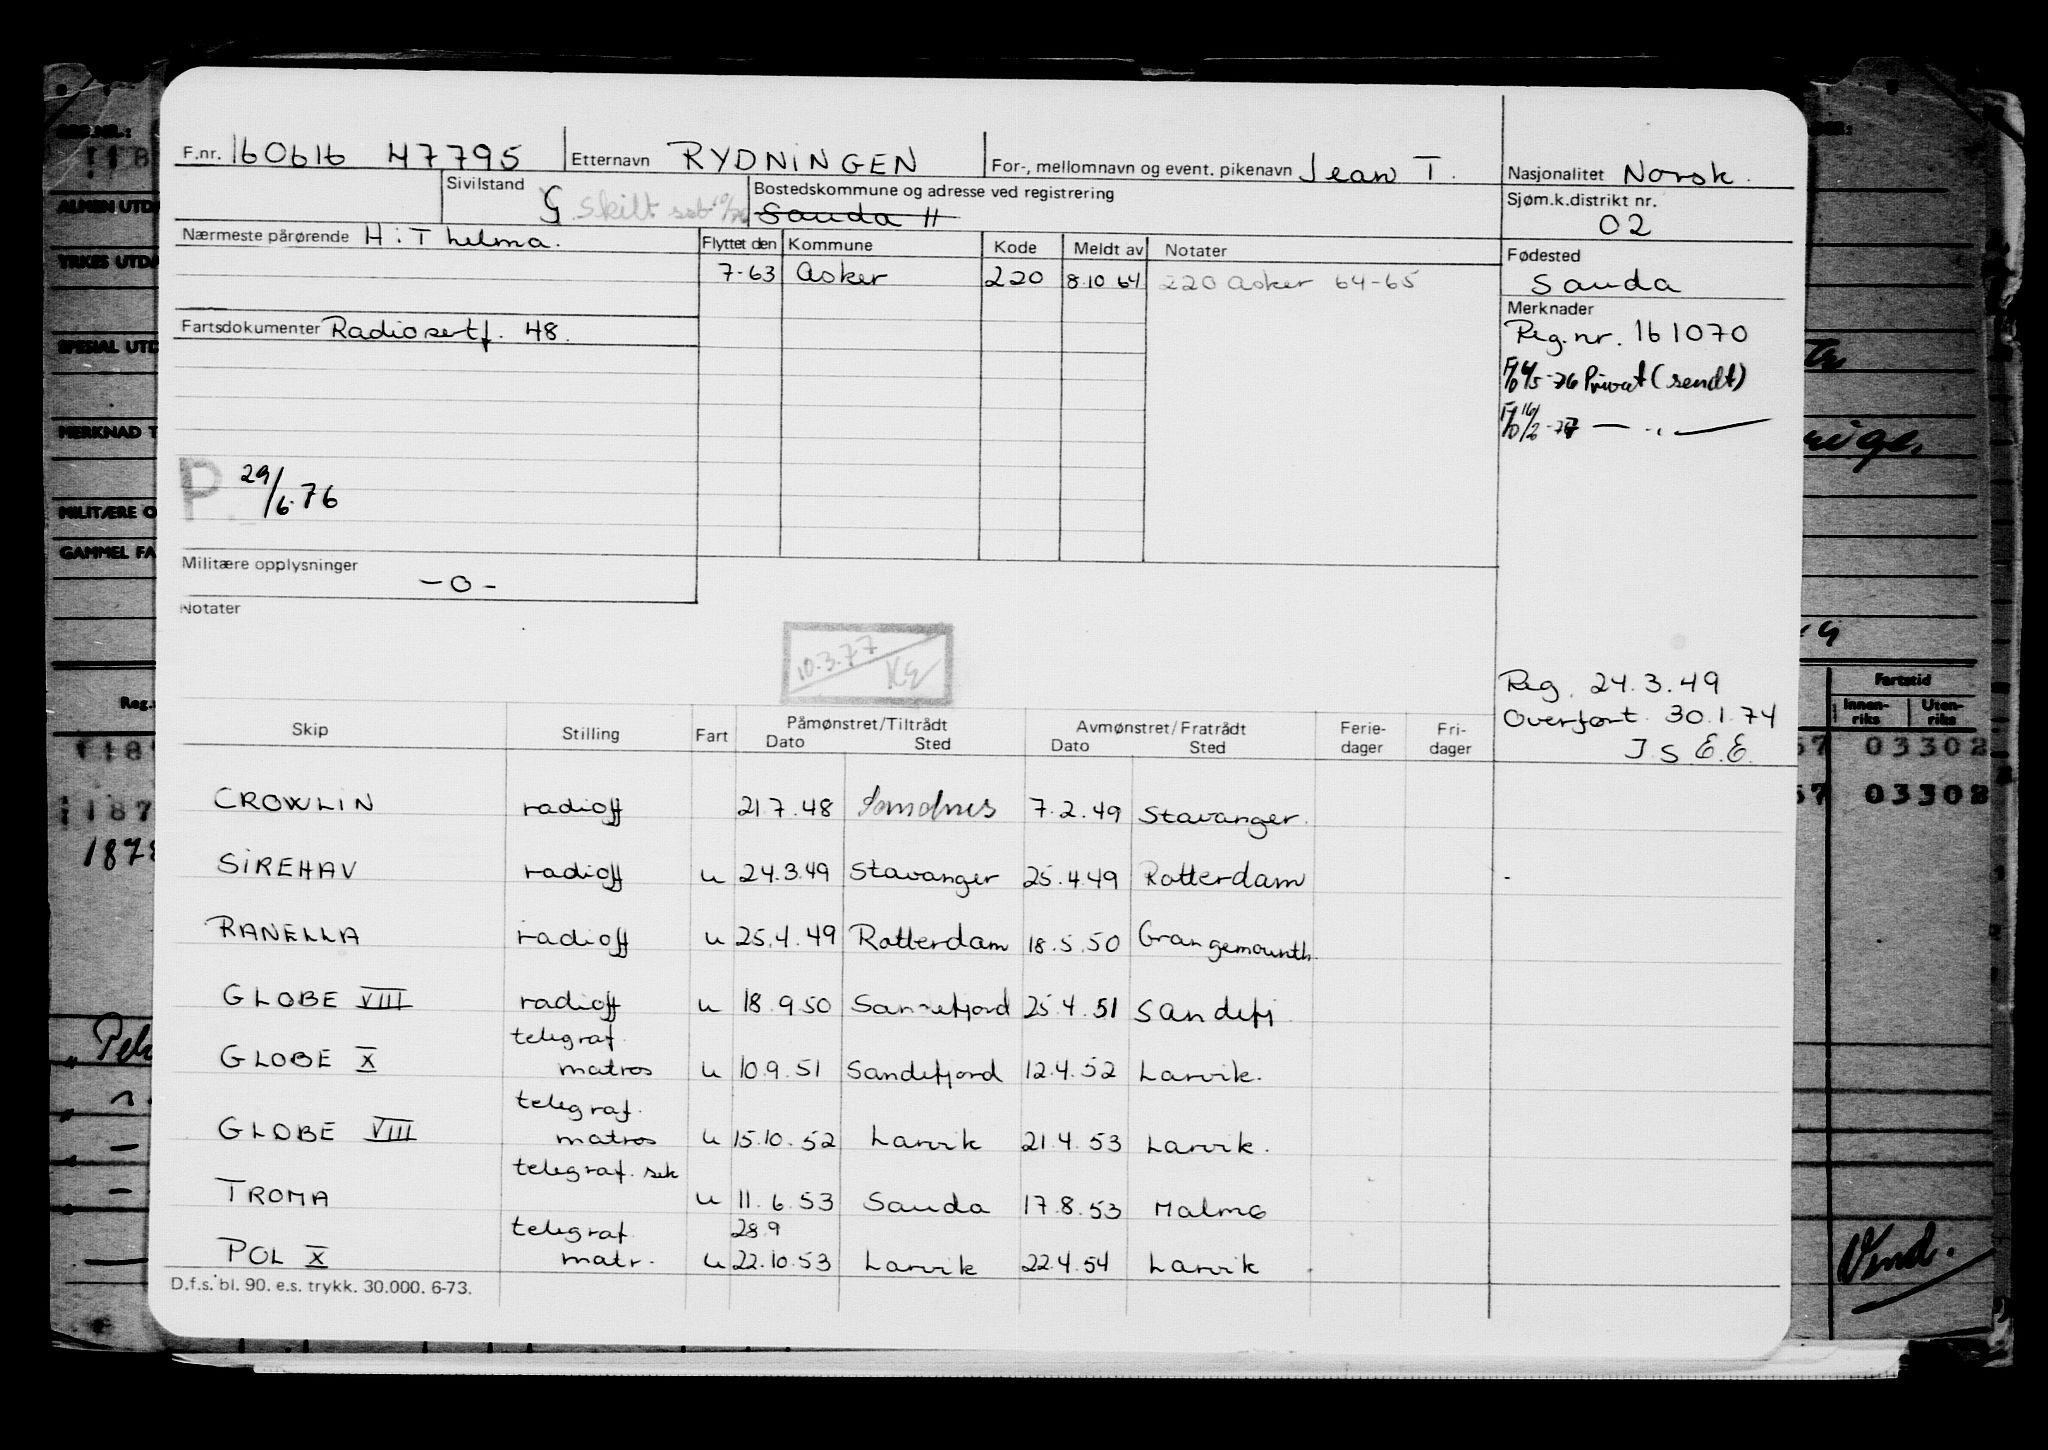 F.nr. 160616 47795 Etternavn RYDNINGEN For-, mellomnavn og event. pikenavn Jean T. Nasjonalitet Norsk.
Sivilstand G skilt Bostedskommune og adresse ved registrering Sauda 11 Sjøm.k.distrikt nr. 02
Nærmeste pårørende H: Thelma. Flyttet den Kommune Kode Meldt av Notater Fødested
7-63 Asker 220 8.10 64 220 Asker 64-65 Sauda
Merknader
Fartsdokumenter Radiosertf. 48. Reg.nr. 161070
Privat (sendt)
P 29/6.76
Militære opplysninger
-0-
Notater
10.3.77
KE
Reg. 24.3.49
Overført 30.1.74
J.S E.E.
Skip Stilling Fart Påmønstret/Tiltrådt Avmønstret/Fratrådt Ferie- Fri-
Dato Sted Dato Sted dager dager
CROWLIN radioff 21.7.48 Sandnes 7.2.49 Stavanger.
SIREHAV radioff u 24.3.49 Stavanger 25.4.49 Rotterdam
RANELLA radioff u 25.4.49 Rotterdam 18.5.50 Grangemounth.
GLOBE VIII radioff u 18.9.50 25.4.51 Sandefj
telegraf.
GLOBE X matros u 10.9.51 Sandefjord 12.4.52 Larvik.
telegraf.
GLOBE VIII matros u 15.10.52 Larvik 21.4.53 Larvik.
telegraf. sek
TROMA u 11.6.53 Sauda 17.8.53 Malmø
telegraf. 28.9
POL X matr. u 22.10.53 Larvik 22.4.54 Larvik
D.f.s. bl. 90. e.s. trykk. 30.000. 6-73.
ALMEN UTD
YRKES UTDA
SPESIAL UTD
MERKNAD T
MILITÆRE O
GAMMEL FA
Reg.
Fartstid
Innen-riks Uten-riks
03302
03302
Vend.